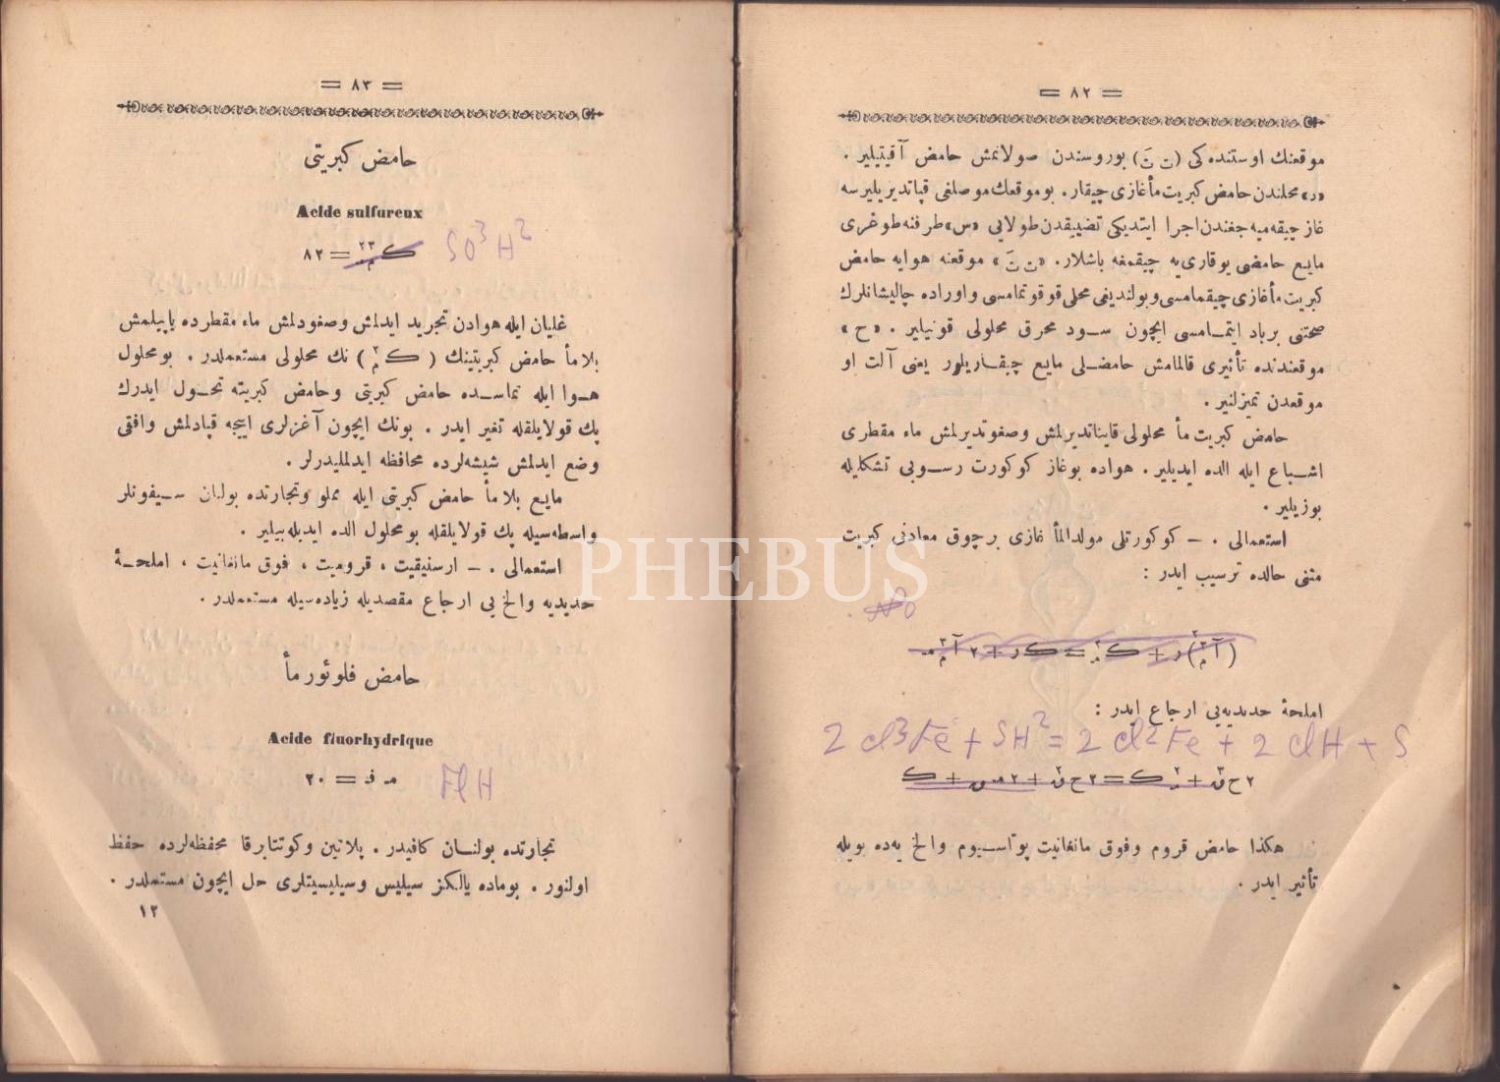 = ٨٢ =
موقعنك اوستنده كی (ت تَ) بوروسندن صولانمش حامض آقیتیلیر .
«ر» محلندن حامض كبریت مأ غازی چیقار. بوموقعك موصلغی قپاتدیریلیرسه
غاز چیقه میه جغندن اجرا ایتدیكی تضییقدن طولایی «س» طرفنه طوغری
مایع حامضی یوقاری یه چیقمغه باشلار. «ت تَ» موقعنه هوایه حامض
كبریت مأ غازی چیقمامسی و بولندیغی محلی قوقوتمامسی و اوراده چالیشانلرك
صحتنی برباد ایتمامسی ایچون سود محرق محلولی قونیلیر . «ح»
موقعندنده تأثیری قالمامش حامضلی مایع چیقاریلور یعنی آلت او
موقعدن تمیزلنیر .
حامض كبریت مأ محلولی قایناتدیرلمش وصغوتدیرلمش ماء مقطری
اشباع ایله الده ایدیلیر . هواده بوغاز كوكورت رسوبی تشكلیله
بوزیلیر .
استعمالی . — كوكورتلی مولدالمأ غازی برچوق معادنی كبریت
متنی حالده ترسیب ایدر :
املحهٔ حدیدیه یی ارجاع ایدر :
2 cl3 Fe + SH2 = 2 cl2 Fe + 2 clH + S
هكذا حامض قروم وفوق مانغانیت پوتاسیوم والخ یه ده بویله
تأثیر ایدر .
= ٨٣ =
حامض كبریتی
Acide sulfureux
= ٨٢
SO3 H2
غلیان ایله هوادن تجرید ایدلمش وصغودلمش ماء مقطرده یاپیلمش
بلا مأ حامض كبریتینك ( ) نك محلولی مستعملدر . بومحلول
هوا ایله تماسده حامض كبریتی وحامض كبریته تحول ایدرك
پك قولایلقله تغیر ایدر . بونك ایچون آغزلری اییجه قپادلمش وافقی
وضع ایدلمش شیشه لرده محافظه ایدلملیدرلر .
مایع بلا مأ حامض كبریتی ایله مملو وتجارتده بولنان سیفونلر
واسطه سیله پك قولایلقله بومحلول الده ایدیله بیلیر .
استعمالی . — ارسنیقیت ، قرومیت ، فوق مانغانیت ، املحهٔ
حدیدیه والخ یی ارجاع مقصدیله زیاده سیله مستعملدر .
حامض فلوئور مأ
Acide fluorhydrique
مـ فـ = ٢٠
Fl H
تجارتده بولنان كافیدر . پلاتین وكوتتاپرقا محفظه لرده حفظ
اولنور . بوماده یالكز سیلیس وسیلیسیتلری حل ایچون مستعملدر .
١٢
PHEBUS